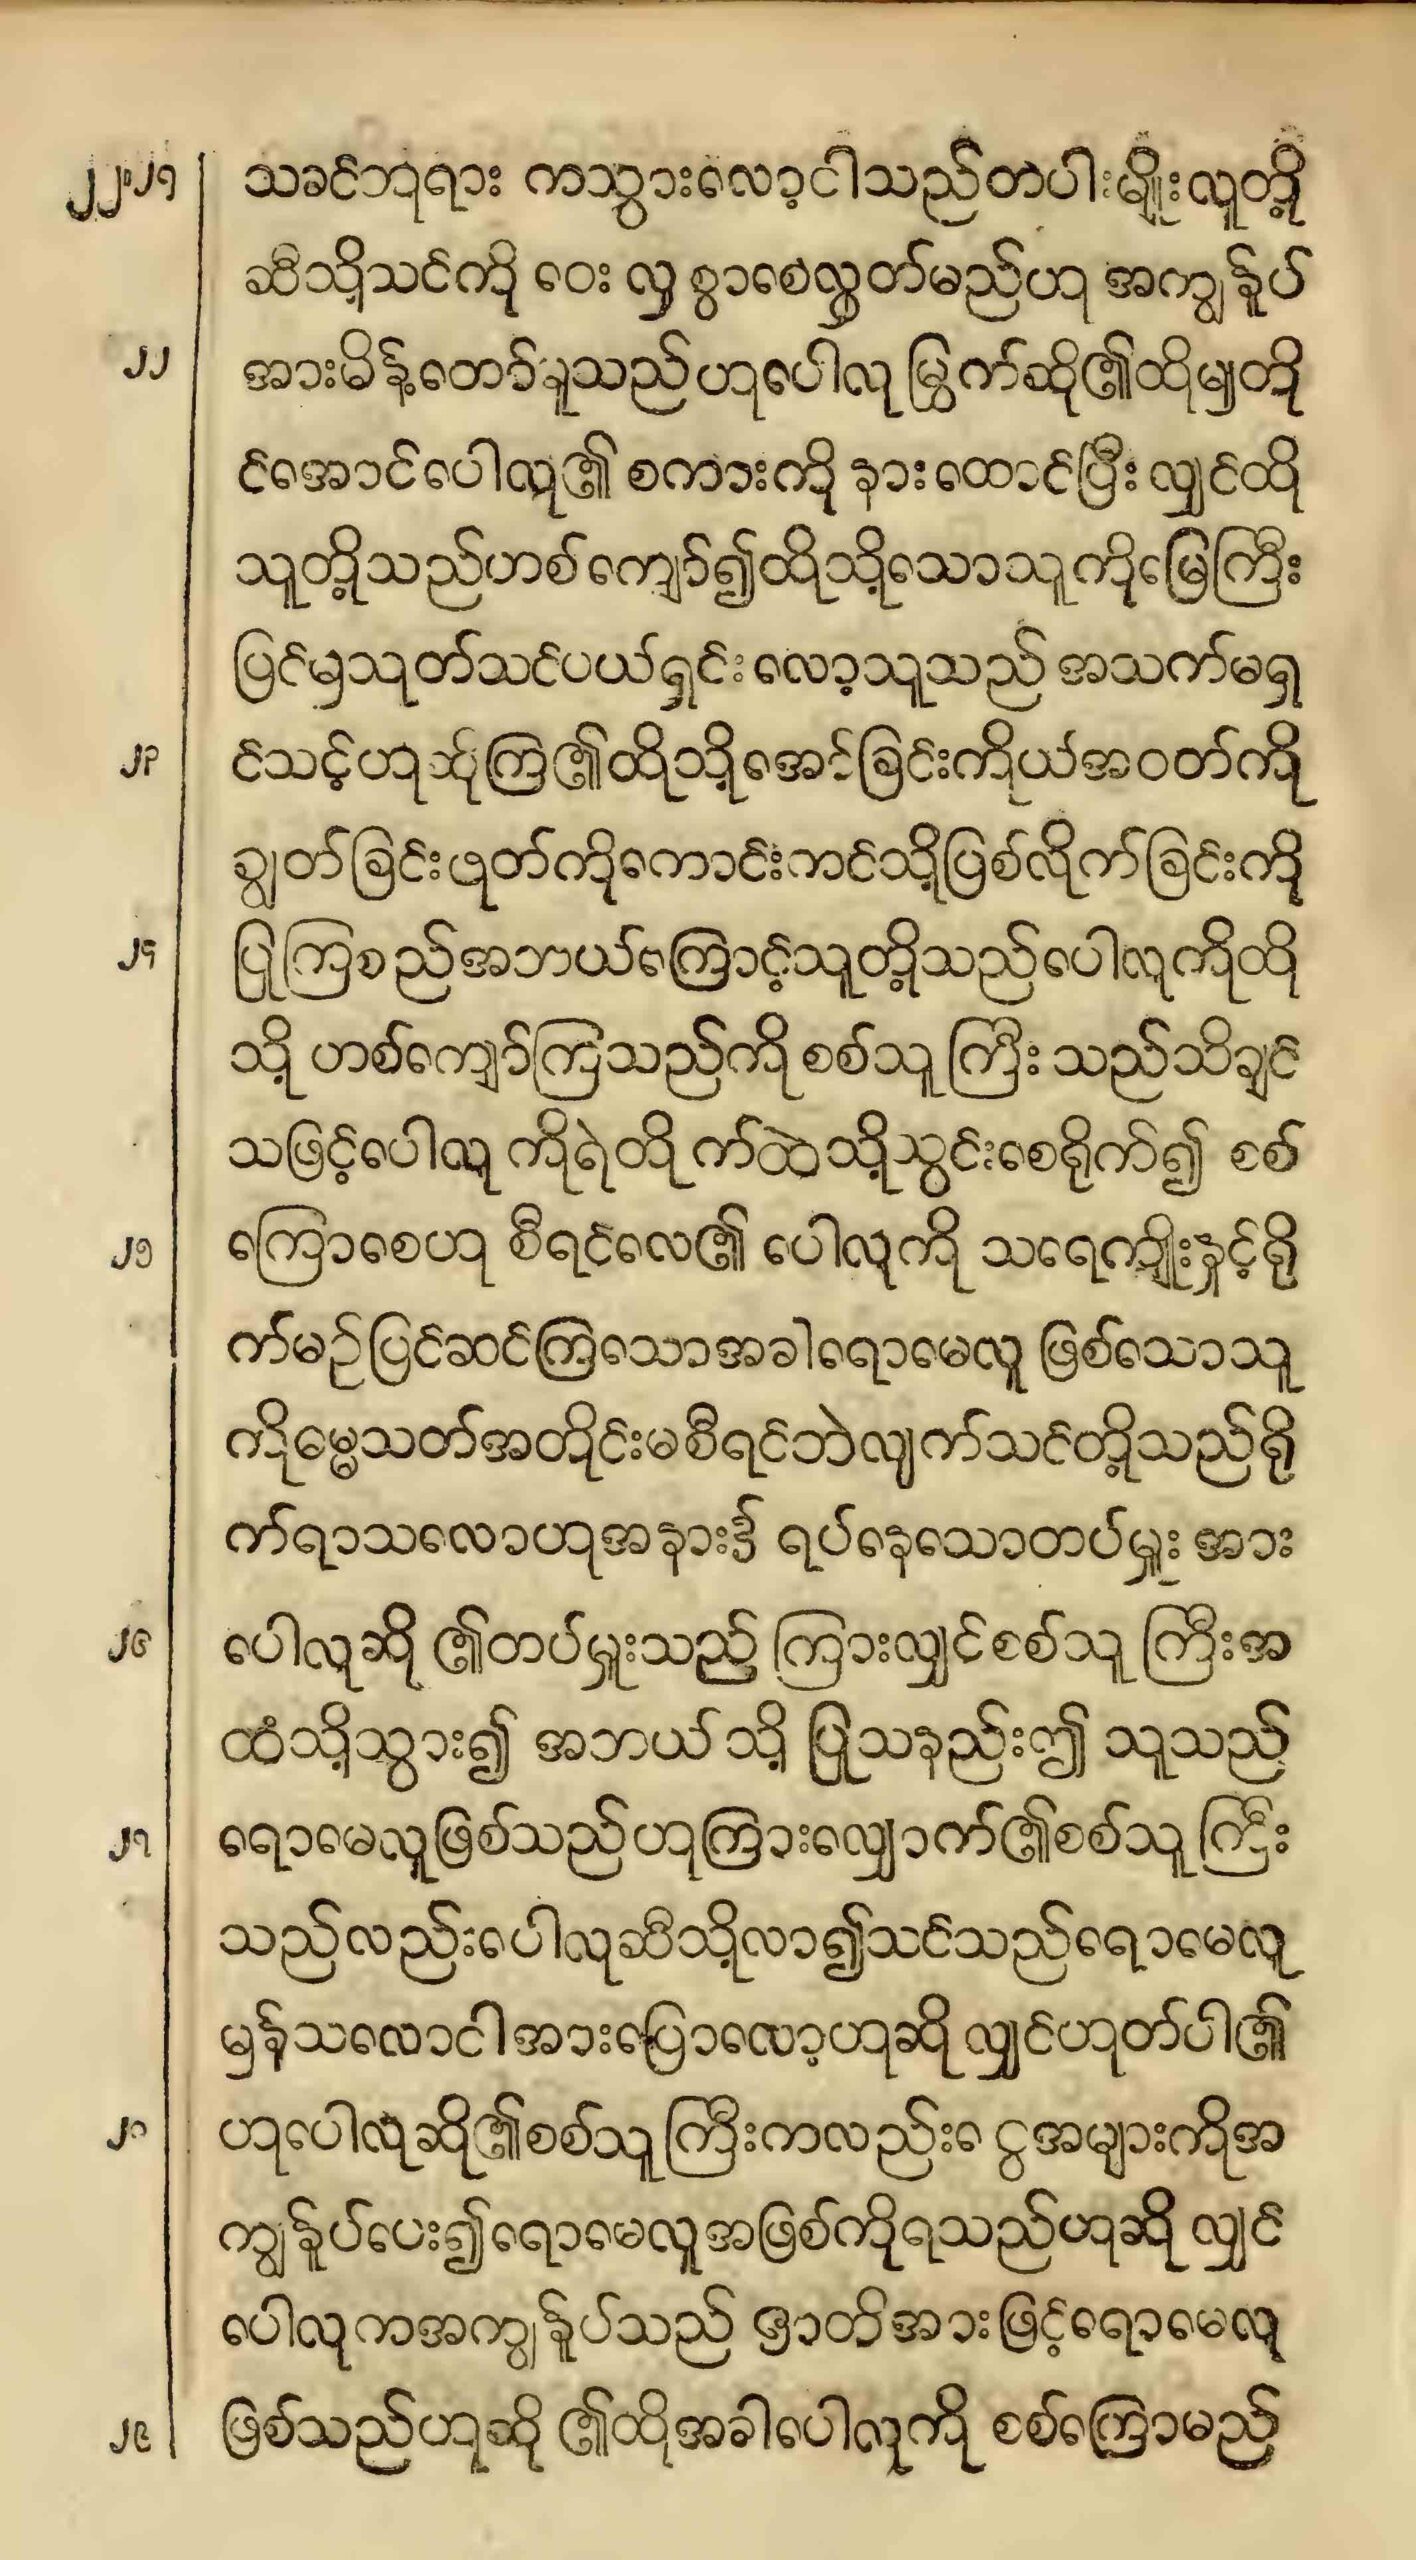 ၂၂း၂၁ သခင်ဘုရား ကသွားလော့ငါသည်တပါးမျိုးလူတို့
ဆီသို့သင်ကို ဝေး လှ စွာစေလွှတ်မည်ဟု အကျွန်ုပ်
၂၂ အားမိန့်တော်မူသည်ဟုပေါလု မြွက်ဆို၏ထိုမျှတို
င်အောင်ပေါလု၏ စကားကို နားထောင်ပြီး လျှင်ထို
သူတို့သည်ဟစ်ကျော်၍ထိုသို့သောသူကိုမြေကြီး
ပြင်မှသုတ်သင်ပယ်ရှင်းလော့သူသည် အသက်မရှ
၂၃ င်သင့်ဟုဆိုကြ၏ထိုသို့အော်ခြင်းကိုယ်အဝတ်ကို
ချွတ်ခြင်းဖုတ်ကိုကောင်းကင်သို့ပြစ်လိုက်ခြင်းကို
၂၄ ပြုကြစည်အဘယ်ကြောင့်သူတို့သည်ပေါလုကိုထို
သို့ ဟစ်ကျော်ကြသည်ကို စစ်သူ ကြီး သည်သိချင်
သဖြင့်ပေါလု ကိုရဲတို က်ထဲသို့သွင်းစေရိုက်၍ စစ်
ကြောစေဟု စီရင်လေ၏ ပေါလုကို သရေကျိုးနှင့်ရို
၂၅ က်မဉ်ပြင်ဆင်ကြသောအခါရောမေလူ ဖြစ်သောသူ
ကိုဓမ္မေသတ်အတိုင်းမစီရင်ဘဲလျက်သင်တို့သည်ရို
က်ရာသလောဟုအနား၌ ရပ်နေသောတပ်မှူး အား
၂၆ ပေါလုဆို ၏တပ်မှူးသည် ကြားလျှင်စစ်သူ ကြီးအ
ထံသို့သွား၍ အဘယ် သို့ ပြုသနည်းဤ သူသည်
၂၇ ရောမေလူဖြစ်သည်ဟုကြားလျှောက်၏စစ်သူ ကြီး
သည်လည်းပေါလုဆီသို့လာ၍သင်သည်ရောမေလူ
မှန်သလောငါအားပြောလော့ဟုဆို လျှင်ဟုတ်ပါ၏
၂၈ ဟုပေါလုဆို၏စစ်သူ ကြီးကလည်းငွေအများကိုအ
ကျွန်ုပ်ပေး၍ရောမေလူအဖြစ်ကိုရသည်ဟုဆို လျှင်
ပေါလုကအကျွန်ုပ်သည် ဇာတိအားဖြင့်ရောမေလူ
၂၉ ဖြစ်သည်ဟုဆို ၏ထိုအခါပေါလုကို စစ်ကြောမည်